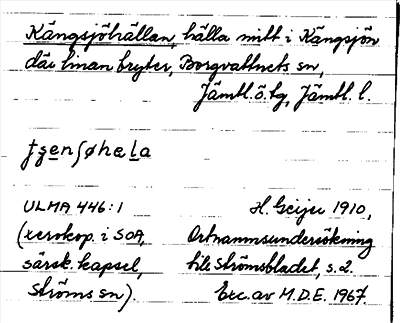 Kängsjöhällan, hälla mitt i Kängsjön
där linan bryter, Borgvattnets sn,
Jämtl. ö. tg, Jämtl. l.
ULMA 446:1
H. Geijer 1910,
(xerokop. i SOA,
Ortnamnsundersökning
särsk. kapsel,
till Strömsbladet, s. 2.
Ströms sn).
Exc. av M.D.E. 1967.